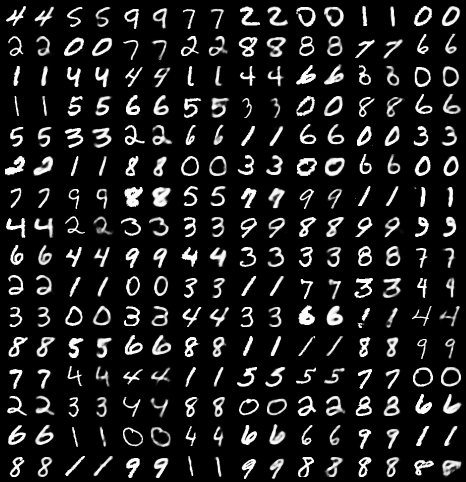 4 4 5 5 9 9 7 7 2 2 0 0 1 1 0 0
2 2 0 0 7 7 2 2 8 8 8 8 7 7 6 6
1 1 4 4 4 4 1 1 4 4 6 6 8 8 0 0
1 1 5 5 6 6 5 5 3 3 0 0 8 8 6 6
5 5 3 3 2 2 6 6 1 1 6 6 0 0 3 3
2 2 1 1 8 8 0 0 3 3 0 0 6 6 0 0
7 7 9 9 8 8 5 5 7 7 9 9 1 1 1 1
4 4 2 2 3 3 3 3 9 9 8 8 9 9 9 9
6 6 4 4 9 9 4 4 3 3 3 3 8 8 7 7
2 2 1 1 0 0 3 3 1 1 7 7 3 3 4 4
3 3 0 0 3 3 4 4 3 3 6 6 1 1 4 4
8 8 5 5 6 6 8 8 1 1 1 1 8 8 9 9
7 7 4 4 4 4 1 1 5 5 5 5 7 7 0 0
2 2 3 3 4 4 8 8 0 0 2 2 8 8 6 6
6 6 1 1 0 0 4 4 6 6 6 6 9 9 1 1
8 8 1 1 9 9 1 1 9 9 8 8 8 8 8 8